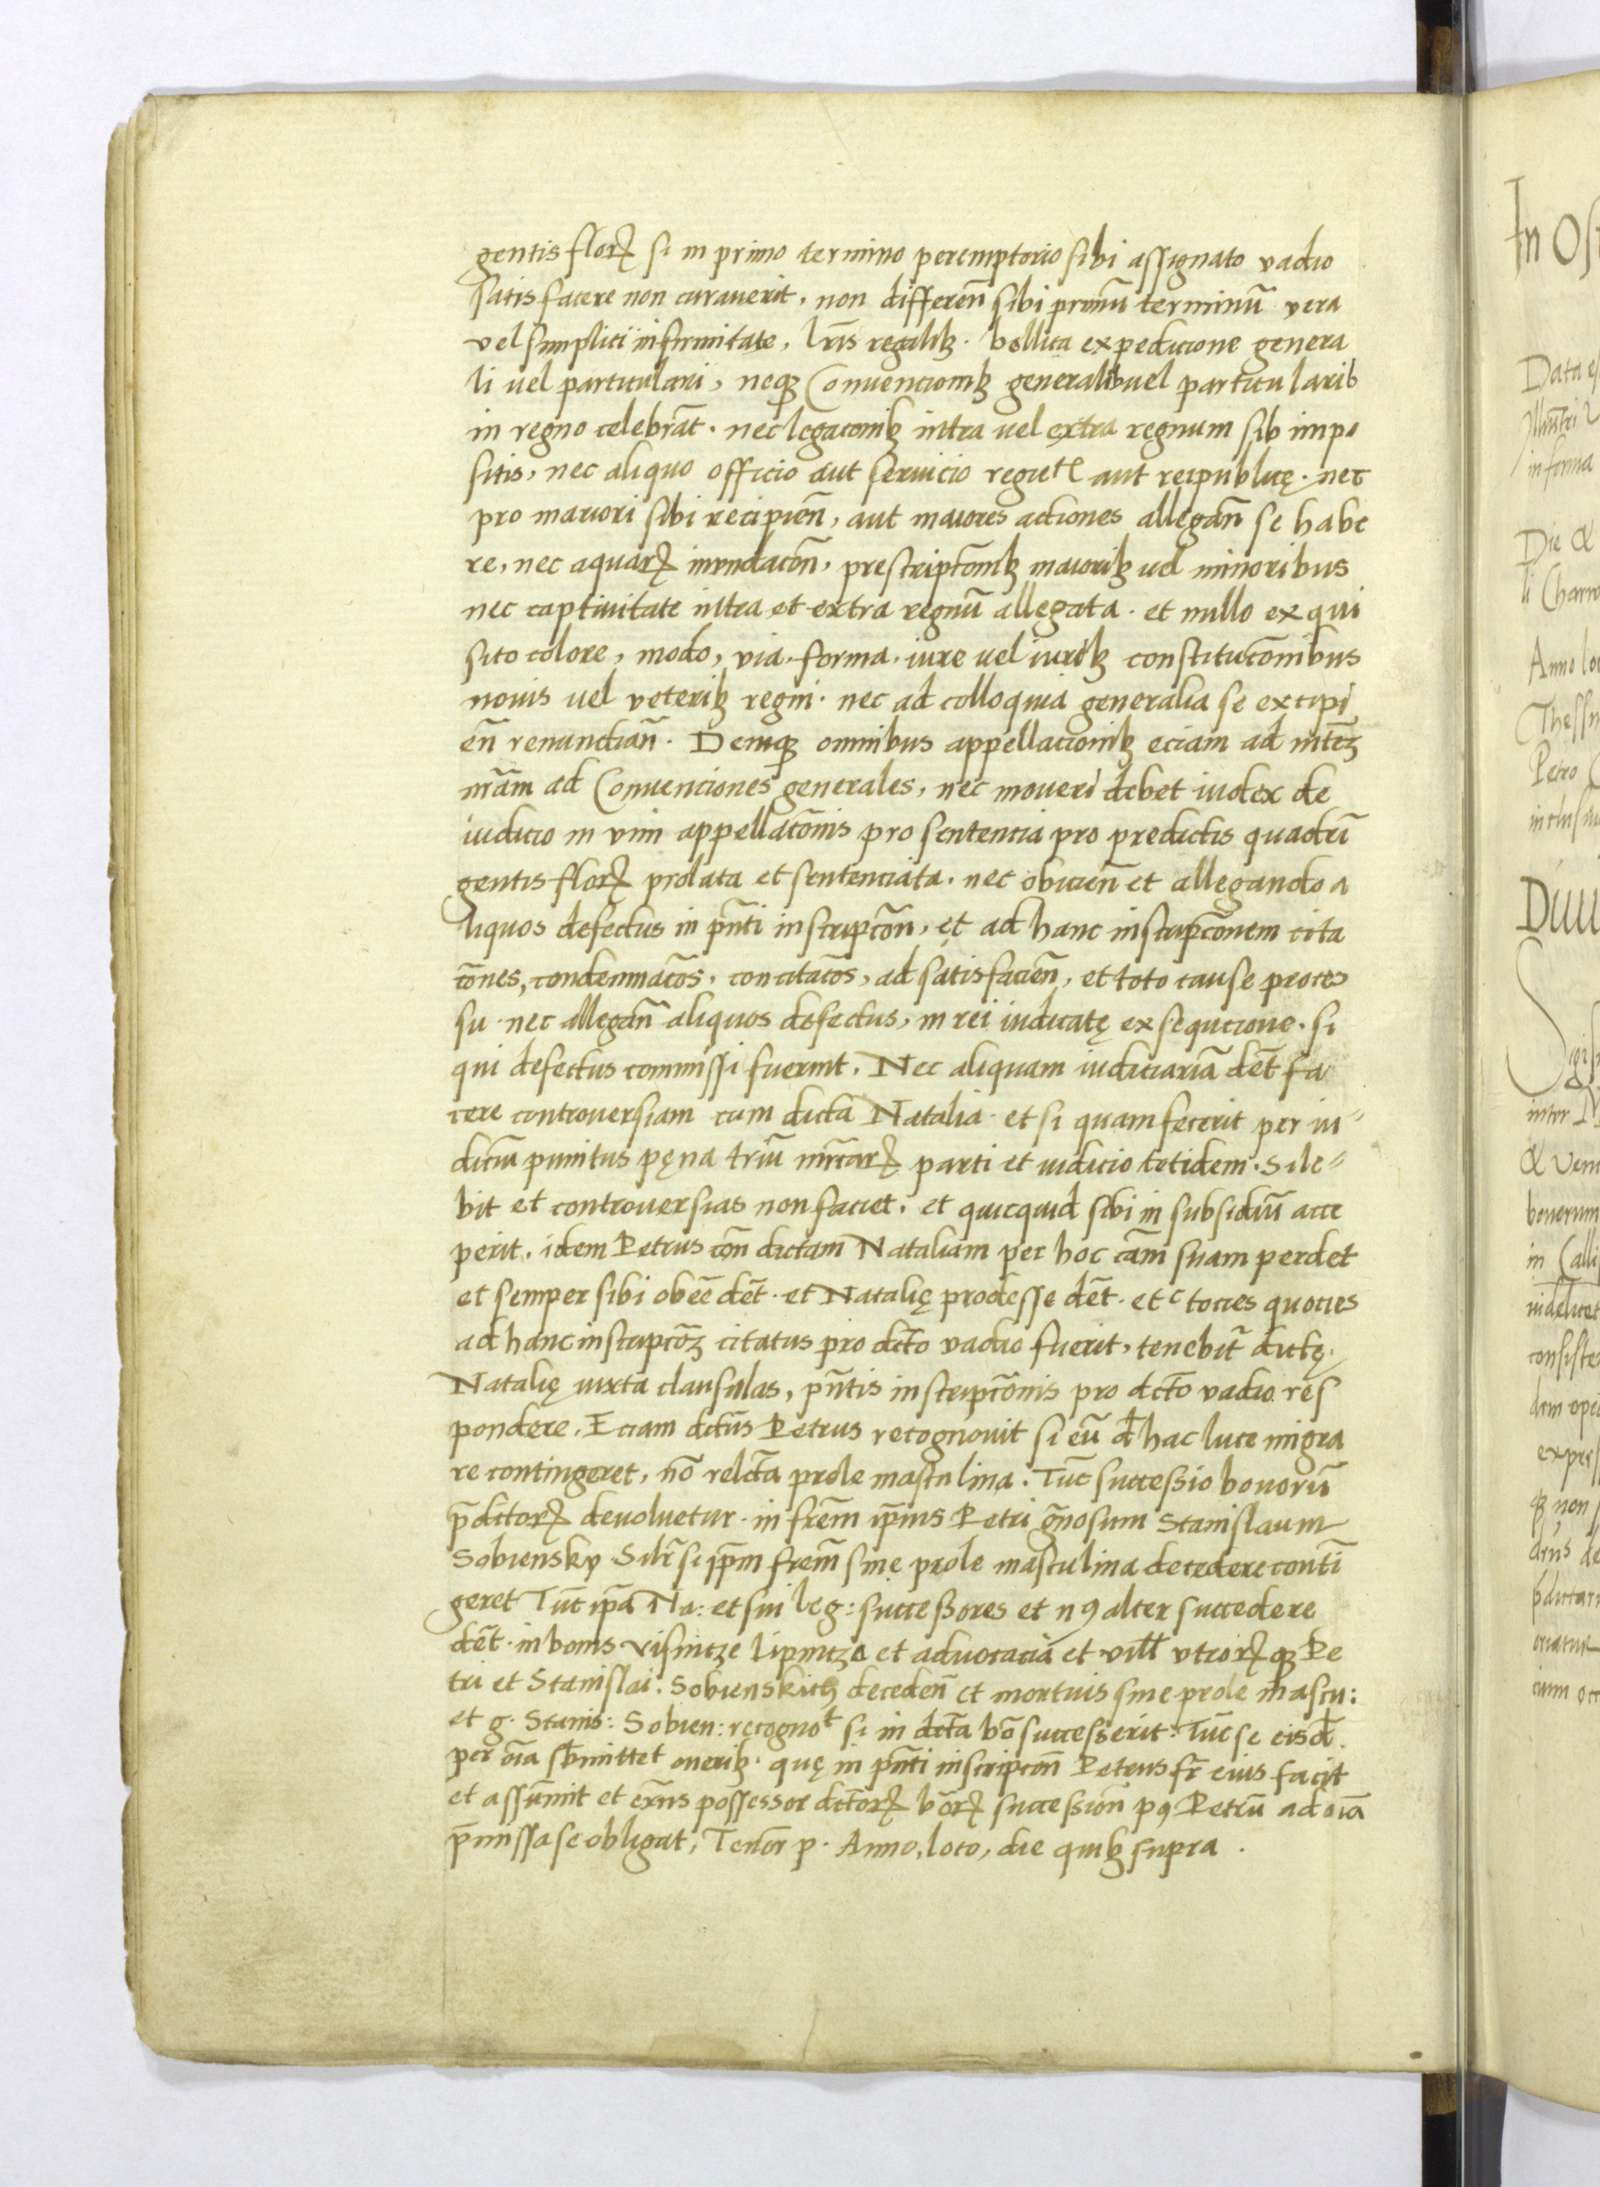 gentis florꝝ si in primo termino peremptorio sibi assignato vadio
satisfacere non curauerit, non differen̄ sibi primū terminū vera
vel simplici infirmitate, l̄ris regalibꝫ. bellica expedicione genera
li vel particulari, neqꝫ Conuencionibꝫ generalib uel particularib
in regno celebrāt. nec legacōnibꝫ intra uel extra regnum sib impo
sitis, nec aliquo officio aut seruicio regie aut reipublicę. nec
pro maiori sibi recipien̄, aut maiores actiones allegan̄ se habe
re, nec aquarꝝ inundacōn̄, prescriptōnibꝫ maioribꝫ uel minoribus
nec captiuitate intra et extra regnū allegata. et nullo exqui
sito colore, modo, via, forma, iure vel iuribꝫ constitucōnibus
nouis uel veteribꝫ regni. nec ad colloquia generalia se excipi
en̄ renunctian̄. Deniqꝫ omnibus appellacionibꝫ eciam ad m̄tēꝫ
nrām ad Conuenciones generales, nec moueri debet iudex de
iudicio in vim appellacōnis pro sentencia pro predictis quadrī
gentis florꝝ prolata et sentenciata. nec obicien̄ et allegando a
liquos defectus in pn̄ti inscripcōn̄, et ad hanc inscripcōnem cita
cōnes, condemnacōs, concitacōs, ad satisfacien̄, et toto cause proces
su nec allegan̄ aliquos defectus, in rei iudicatę exsequcione. si
qui defectus commissi fuerint. Nec aliquam iudiciariā dēt fa
cere controuersiam cum dicta Natalia. et si quam fecerit per iu
diciū punitus pęna triū mr̄carꝝ parti et iudicio totidem. Sile
bit et controuersias non faciet. et quicquid sibi in subsidiū acce
perit. idem Petrus cōn̄ dictam Nataliam per hoc cām̄ suam perdet
et semper sibi obeē dēt. et Natalię prodesse dēt. etc tocies quocies
ad hanc inscripcōꝫ citatus pro dcto vadio fuerit, tenebit̄ dictę
Natalię iuxta clausulas, pn̄tis inscripcōnis pro dcto vadio res
pondere. Eciam dctus Petrus recognouit si eū d hac luce migra
re contingeret, nō relcta prole masculina. Tūc successio bonorū
p̄dctorꝝ deuoluetur. in frēm ip̄ius Petri gn̄osum Stanislaum
Sobiensky Silr̄ si ip̄m frēm sine prole masculina decedere contī
geret Tūc ip̄a Na: et sui leg: successores et nꝯ alter succedere
dēt. in bonis visnicze lipnicza et aduocacia et vill vtrorꝝqꝫ Pe
tri et Stanislai: Sobienskich deceden̄ et mortuis sine prole mascu:
et g. Stanis: Sobien: recognot si in dcta bō successerit: Tūc se eisd.
per oīa sbmittet oneribꝫ. quę in pn̄ti inscripcōn̄ Petrus fr̄ eius facit
et assūmit et qn̄s possessor dctorꝝ bōrꝝ succession̄ pꝯ Petrū ad oīa
p̄missa se obligat, Tenor̄ p. Anno, loco, die quibꝫ supra.